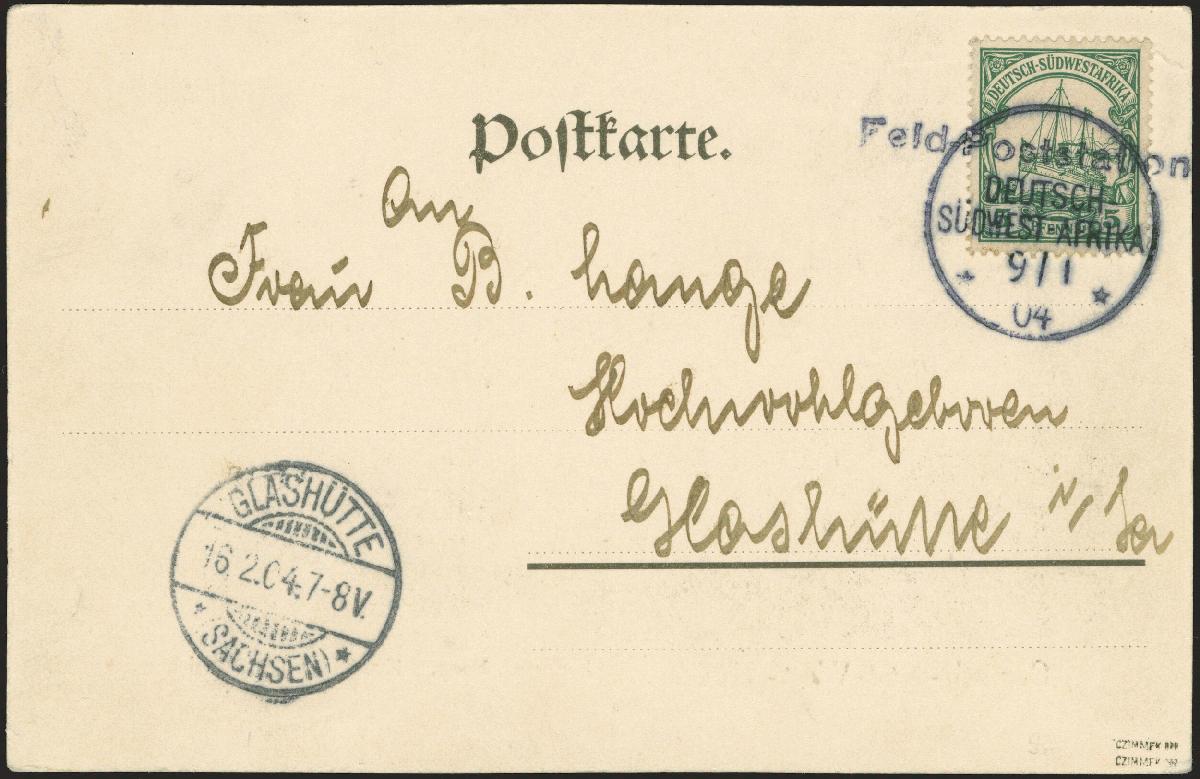 DEUTSCH-SÜDWESTAFRIKA
Postkarte.
Feld-Poststation
DEUTSCH
SÜDWEST AFRIKA
9/1
04
5
An
Frau B. Lange
Hochwohlgeboren
Glashütte i/Sa
GLASHÜTTE
16.2.04.7-8V.
(SACHSEN)
CZIMMEK
CZIMMEK